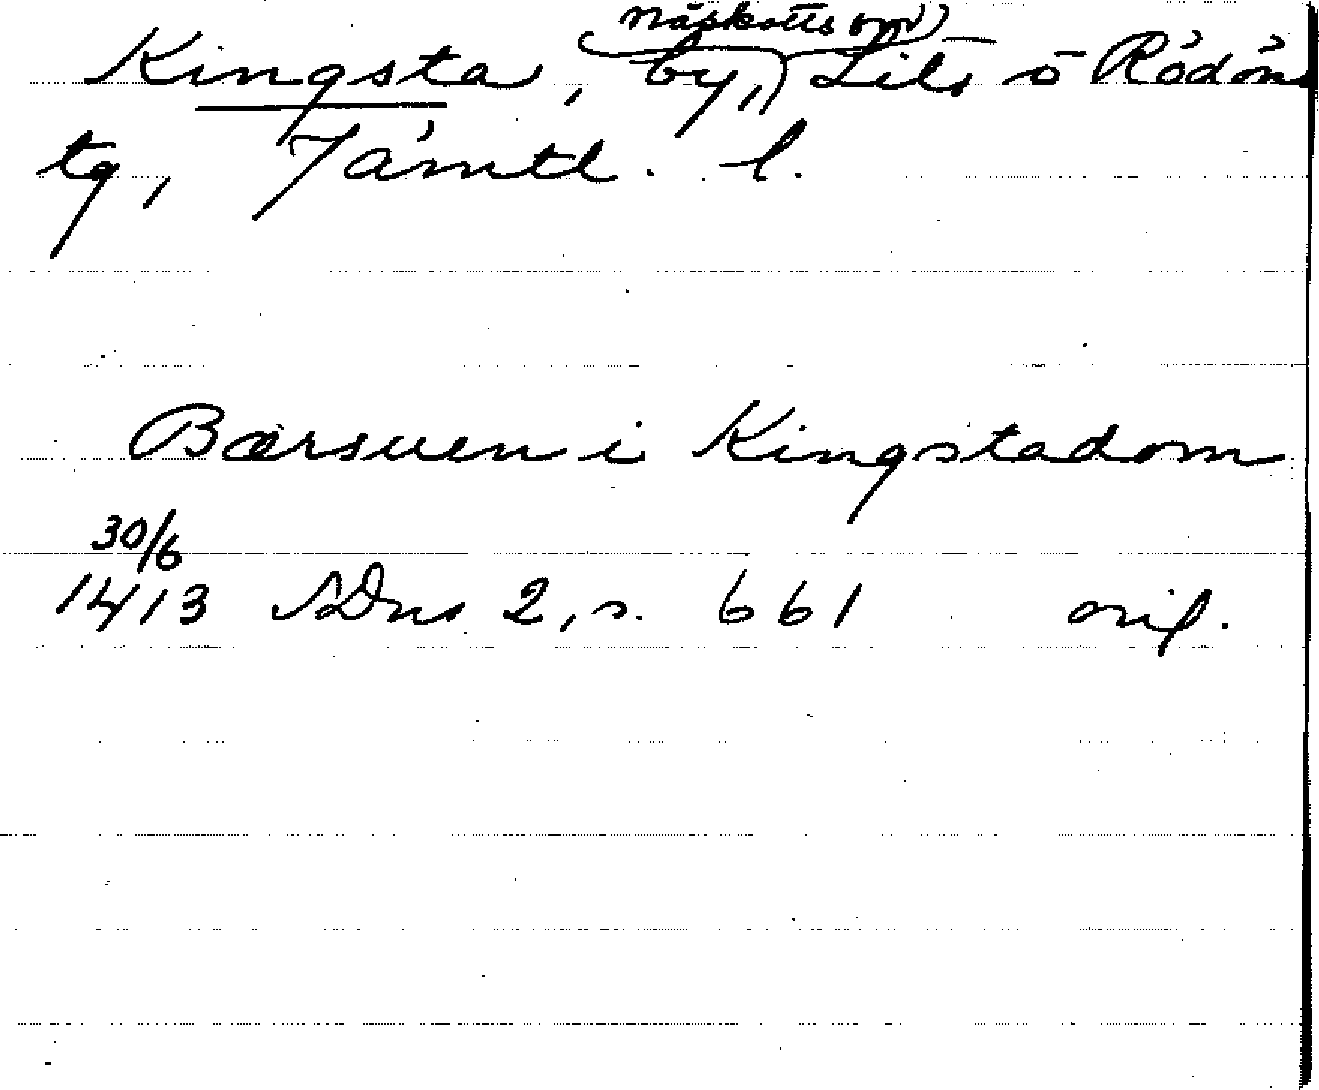 Näskotts områ
Kingsta, by, Lits o Rödöns
tg, Jämtl. l.
Bærsuen i Kingstadom
30/6
1413 SDns 2, s. 661 orig.